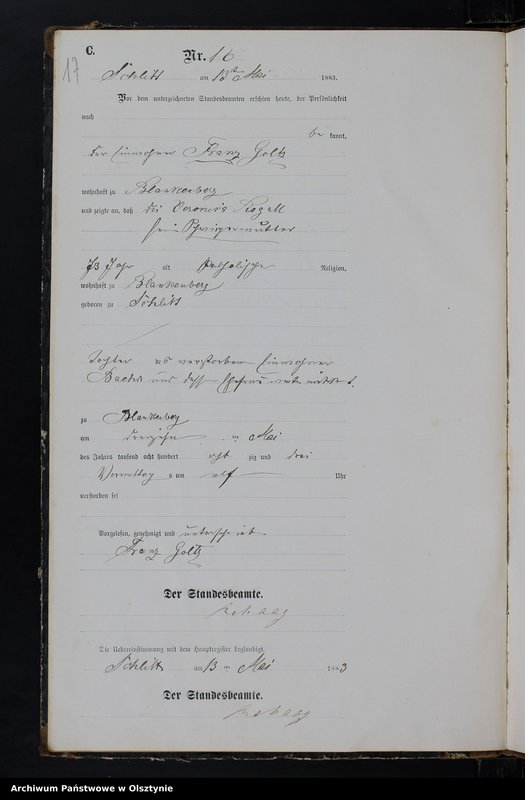 C.
17
Nr. 16
Schlitt am 13ten Mai 1883.
Vor dem unterzeichneten Standesbeamten erschien heute, der Persönlichkeit
nach
be kannt,
der Einwohner Franz Goltz
wohnhaft zu Blankenberg
und zeigte an, daß die Veronika Rogall
seine Schwiegermutter
73 Jahr alt Katholischer Religion,
wohnhaft zu Blankenberg
geboren zu Schlitt
Tochter des verstorbenen Einwohner
und dessen Ehefrau
zu Blankenberg
am dreizehn ten Mai
des Jahres tausend acht hundert acht zig und drei
Vormittag s um elf Uhr
verstorben sei
Vorgelesen, genehmigt und unterschrieben
Franz Goltz
Der Standesbeamte.
Die Uebereinstimmung mit dem Hauptregister beglaubigt.
Schlitt am 13 ten Mai 1883
Der Standesbeamte.
Archiwum Państwowe w Olsztynie